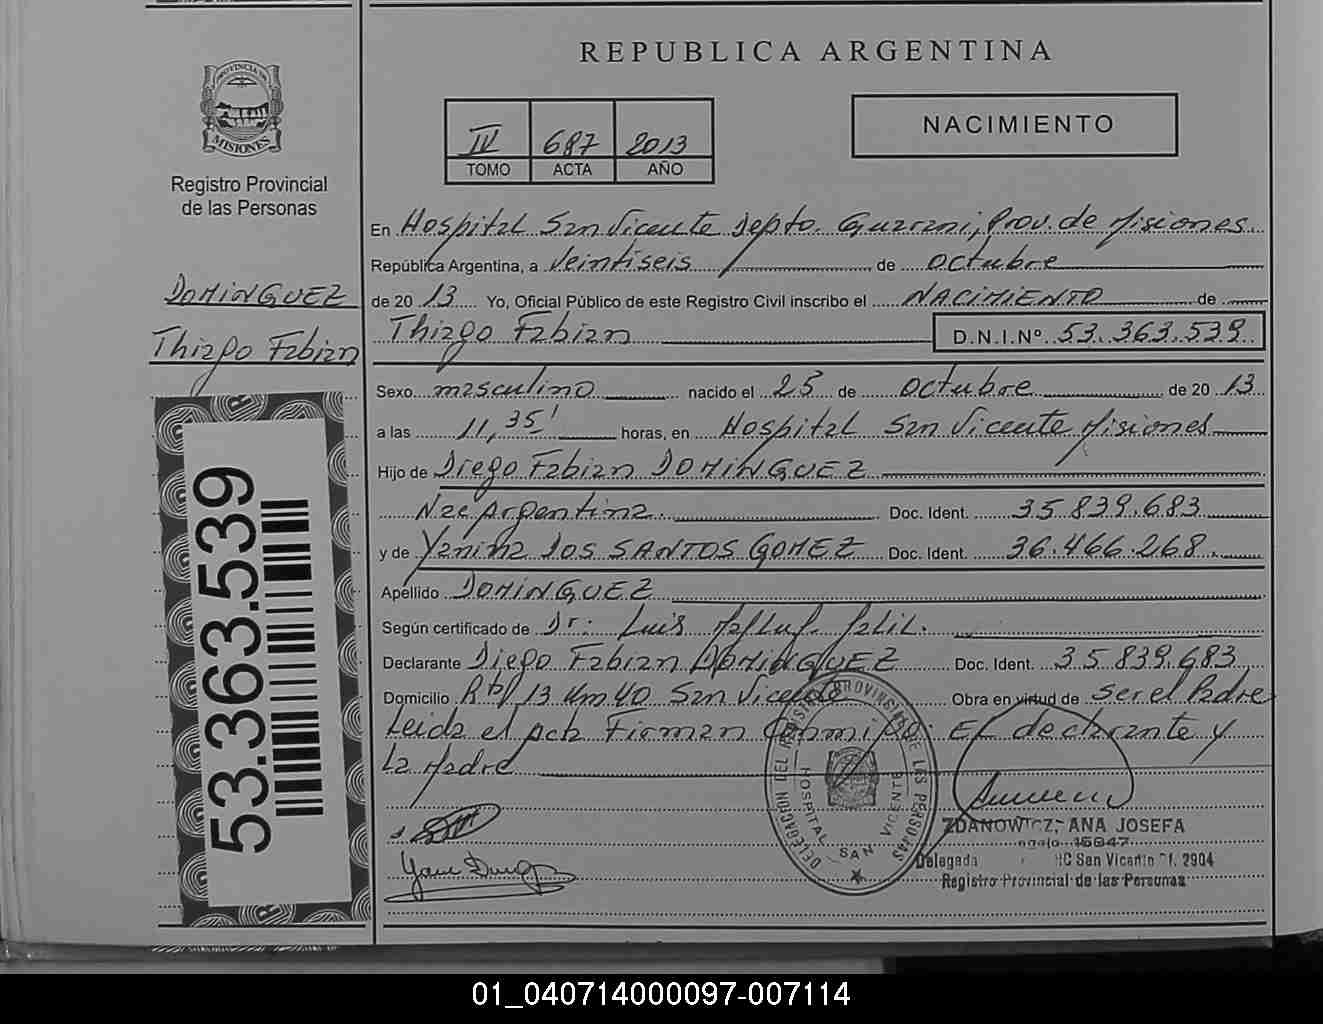 REPUBLICA ARGENTINA
PROVINCIA DE
MISIONES
Registro Provincial
de las Personas
IV 687 2013
TOMO ACTA AÑO
NACIMIENTO
En Hospital San Vicente Depto. Guarani, Prov. de Misiones
República Argentina, a Veintiseis de octubre
de 20 13 Yo, Oficial Público de este Registro Civil inscribo el NACIMIENTO de
Thiago Fabian D.N.I.Nº 53.363.539
DOMINGUEZ
Thiago Fabian
53.363.539
Sexo masculino nacido el 25 de octubre de 20 13
a las 11,35' horas, en Hospital San Vicente Misiones
Hijo de Diego Fabian DOMINGUEZ
Nac Argentina. Doc. Ident. 35.839.683
y de Yanina DOS SANTOS GOMEZ Doc. Ident. 36.466.268
Apellido DOMINGUEZ
Según certificado de Dr: Luis
Declarante Diego Fabian DOMINGUEZ Doc. Ident. 35.839.683
Domicilio 13 Km 40 San Vicente Obra en virtud de ser el Padre
Leida el acta Firman Conmigo: El declarante y
La Madre
DELEGACION DEL REGISTRO PROVINCIAL DE LAS PERSONAS
HOSPITAL SAN VICENTE
ZDANOWICZ, ANA JOSEFA
Legajo 15847
Delegada San Vicente 2904
Registro Provincial de las Personas
01_040714000097-007114